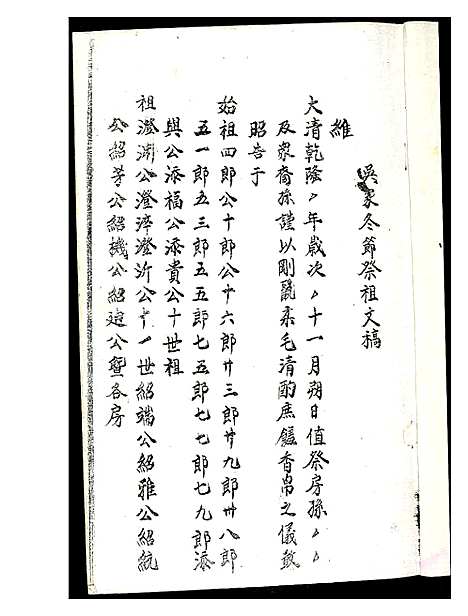 吳家冬節祭祖文稿
維
大清乾隆〻年歲次〻十一月朔日值祭房孫〻〻
及眾裔孫謹以剛鬣柔毛清酌庶饈香帛之儀敢
昭告于
始祖四郎公十郎公十六郎廿三郎廿九郎卅八郎
五一郎五三郎五五郎七五郎七七郎七九郎添
與公添福公添貴公十世祖
祖澄渊公澄淬澄沂公十一世紹端公紹雅公紹統
公紹芳公紹機公紹建公暨各房